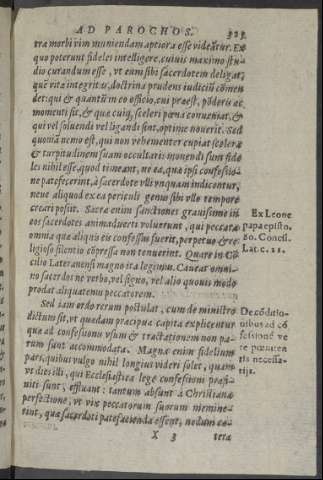 AD PAROCHOS. 325
tra morbi vim muniendam aptiora esse videãtur. Ex
quo poterunt fideles intelligere, cuiuis maximo stu-
dio curandum esse, vt eum sibi sacerdotem deligat,
quẽ vita integritas, doctrina prudens iudiciũ cõmen
det: qui & quantũm eo officio, cui præest, põderis ac
momenti sit, & quæ cuiq; sceleri pœna conueniat, &
qui vel soluendi vel ligandi sint, optime nouerit. Sed
quoniã nemo est, qui non vehementer cupiat scelera
& turpitudinem suam occultari: monendi sunt fide
les nihil esse, quod timeant, ne ea, quæ ipsi confessio-
ne patefecerint, à sacerdote vlli vnquam indicentur,
neue aliquod ex ea periculi genus sibi vllo tempore
creari possit. Sacræ enim sanctiones grauissime in
eos sacerdotes animaduerti voluerunt, qui peccata
omnia quæ aliquis eis confessus fuerit, perpetuo & re-
ligioso silentio cõpressa non tenuerint. Quare in Cõ
cilio Lateranensi magno ita legimus. Caueat omni-
no sacerdos ne verbo, vel signo, vel alio quouis modo
prodat aliquatenus peccatorem.
Ex Leone
papa episto.
80. Concil.
Lat. c. 21.
Sed iam ordo rerum postulat, cum de ministro
dictum sit, vt quædam præcipua capita explicentur
quæ ad confessionis vsum & tractationem non pa-
rum sunt accommodata. Magna enim fidelium
pars, quibus vulgo nihil longius videri solet, quam
vt dies illi, qui Ecclesiastica lege confessioni præfi-
niti sunt, effluant: tantum absunt à Christiana
perfectione, vt vix peccatorum suorum memine-
rint, quæ sacerdoti patefacienda essent, nedum cæ-
De cõditio-
nibus ad cõ
fessionẽ ve
rę pœniten
tis necessa-
rijs.
X 3 tera